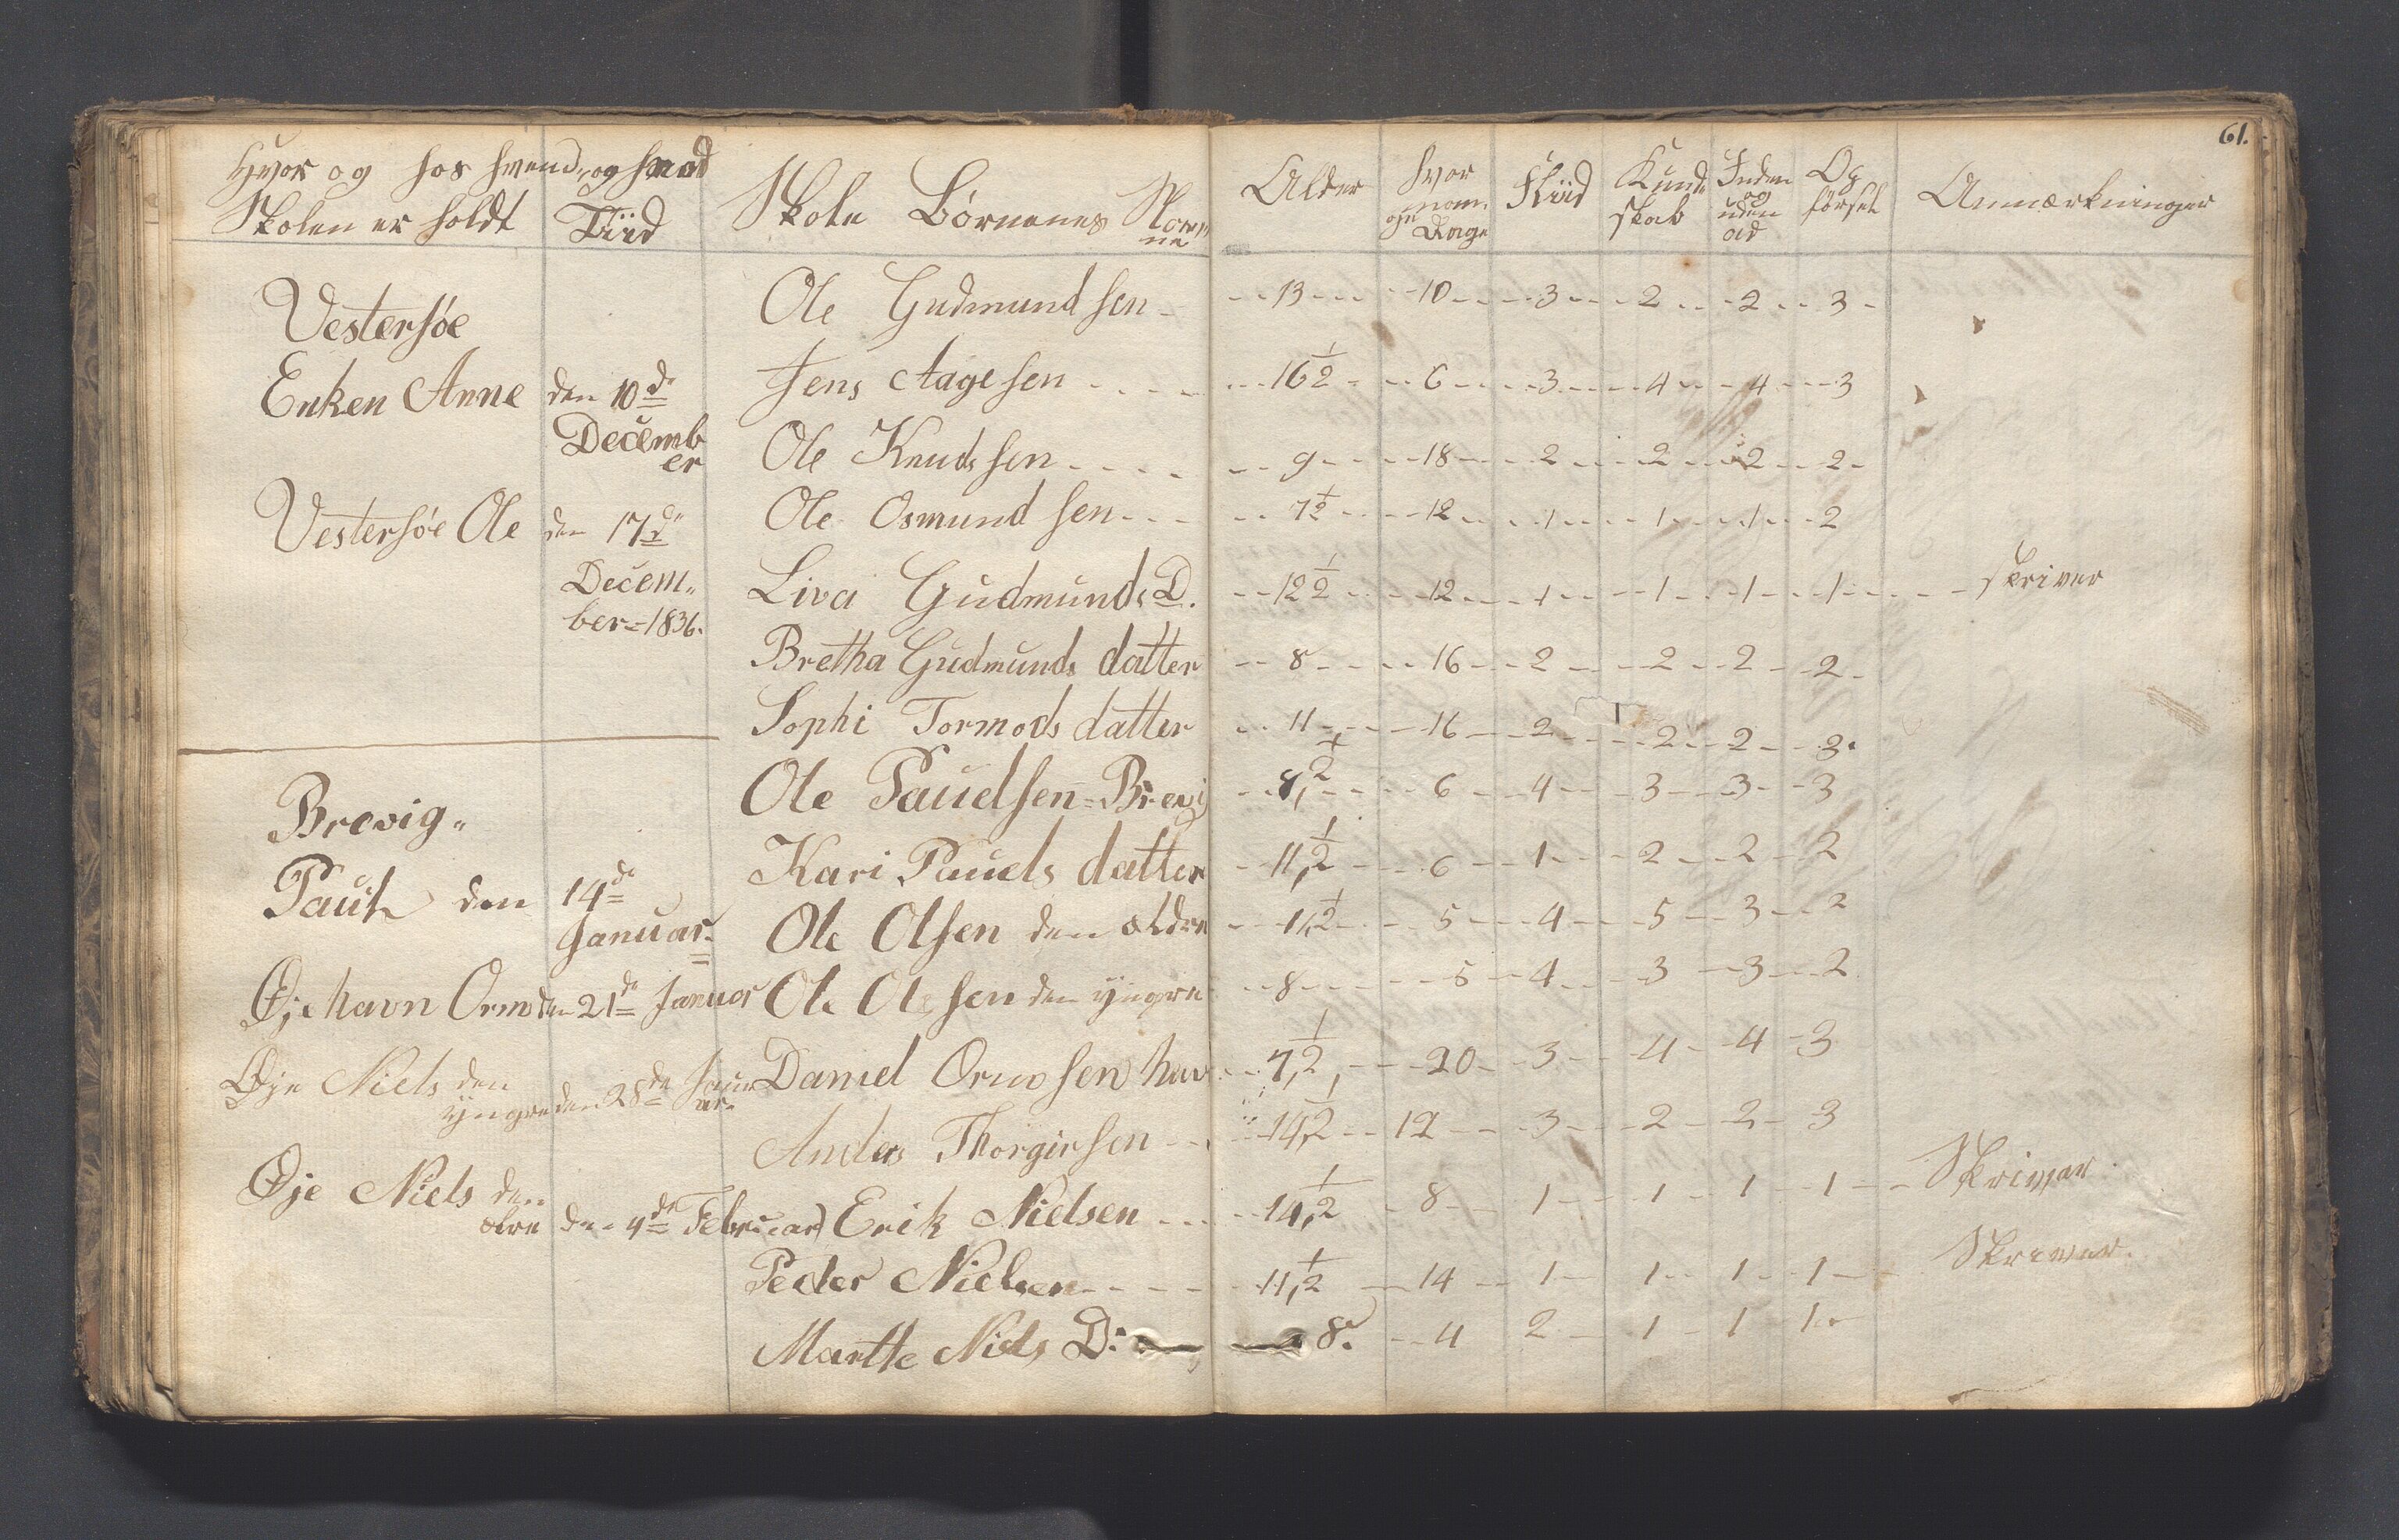 61.
Hvor og hos hvem, og hvad
Skolen er holdt Tiid Skole Börnenes Navne Alder hvor mange Dage Fliid Kundskab Inden og uden ad Opførsel Anmærkninger
Vestersøe Ole Gudmundsen - 13 - 10 - 3 - 2 - 2 - 3 -
Enken Anne den 10de December Jens Aagesen - 16 1/2 - 6 - 3 - 4 - 4 - 3
Ole Knudssen - 9 - 18 - 2 - 2 - 2 - 2 -
Vestersøe Ole den 17de December = 1836. Ole Osmundsen - 7 1/2 - 12 - 1 - 1 - 1 - 2
Liva Gudmunds D. - 12 1/2 - 12 - 1 - 1 - 1 - 1 - skriver
Bretha Gudmunds datter - 8 - 16 - 2 - 2 - 2 - 2 -
Sophi Tormods datter - 11 - 16 - 2 - 2 - 2 - 3.
Brevig Ole Pauelsen = Brevig - 8, 1/2 - 6 - 4 - 3 - 3 - 3
Kari Pauels datter - 11, 1/2 - 6 - 1 - 2 - 2 - 2
Paul den 14de Januar Ole Olsen den oldre - 11, 1/2 - 5 - 4 - 5 - 3 - 2
Øjehavn Orm den 21de Januar Ole Olsen den yngre - 8 - 5 - 4 - 3 - 3 - 2
Øje Niels den yngre den 28de Januar Daniel Ormsen hav - 7, 1/2 - 20 - 3 - 4 - 4 - 3
Anders Thorgirsen - 14, 1/2 - 12 - 3 - 2 - 2 - 3
Øje Niels den olre den 4de Februar Erik Nielsen - 14, 1/2 - 8 - 1 - 1 - 1 - 1 - Skriver
Peder Nielsen - 11, 1/2 - 14 - 1 - 1 - 1 - 1 - Skriver.
Marthe Niels D: 8. - 4 2 - 1 - 1 1 -